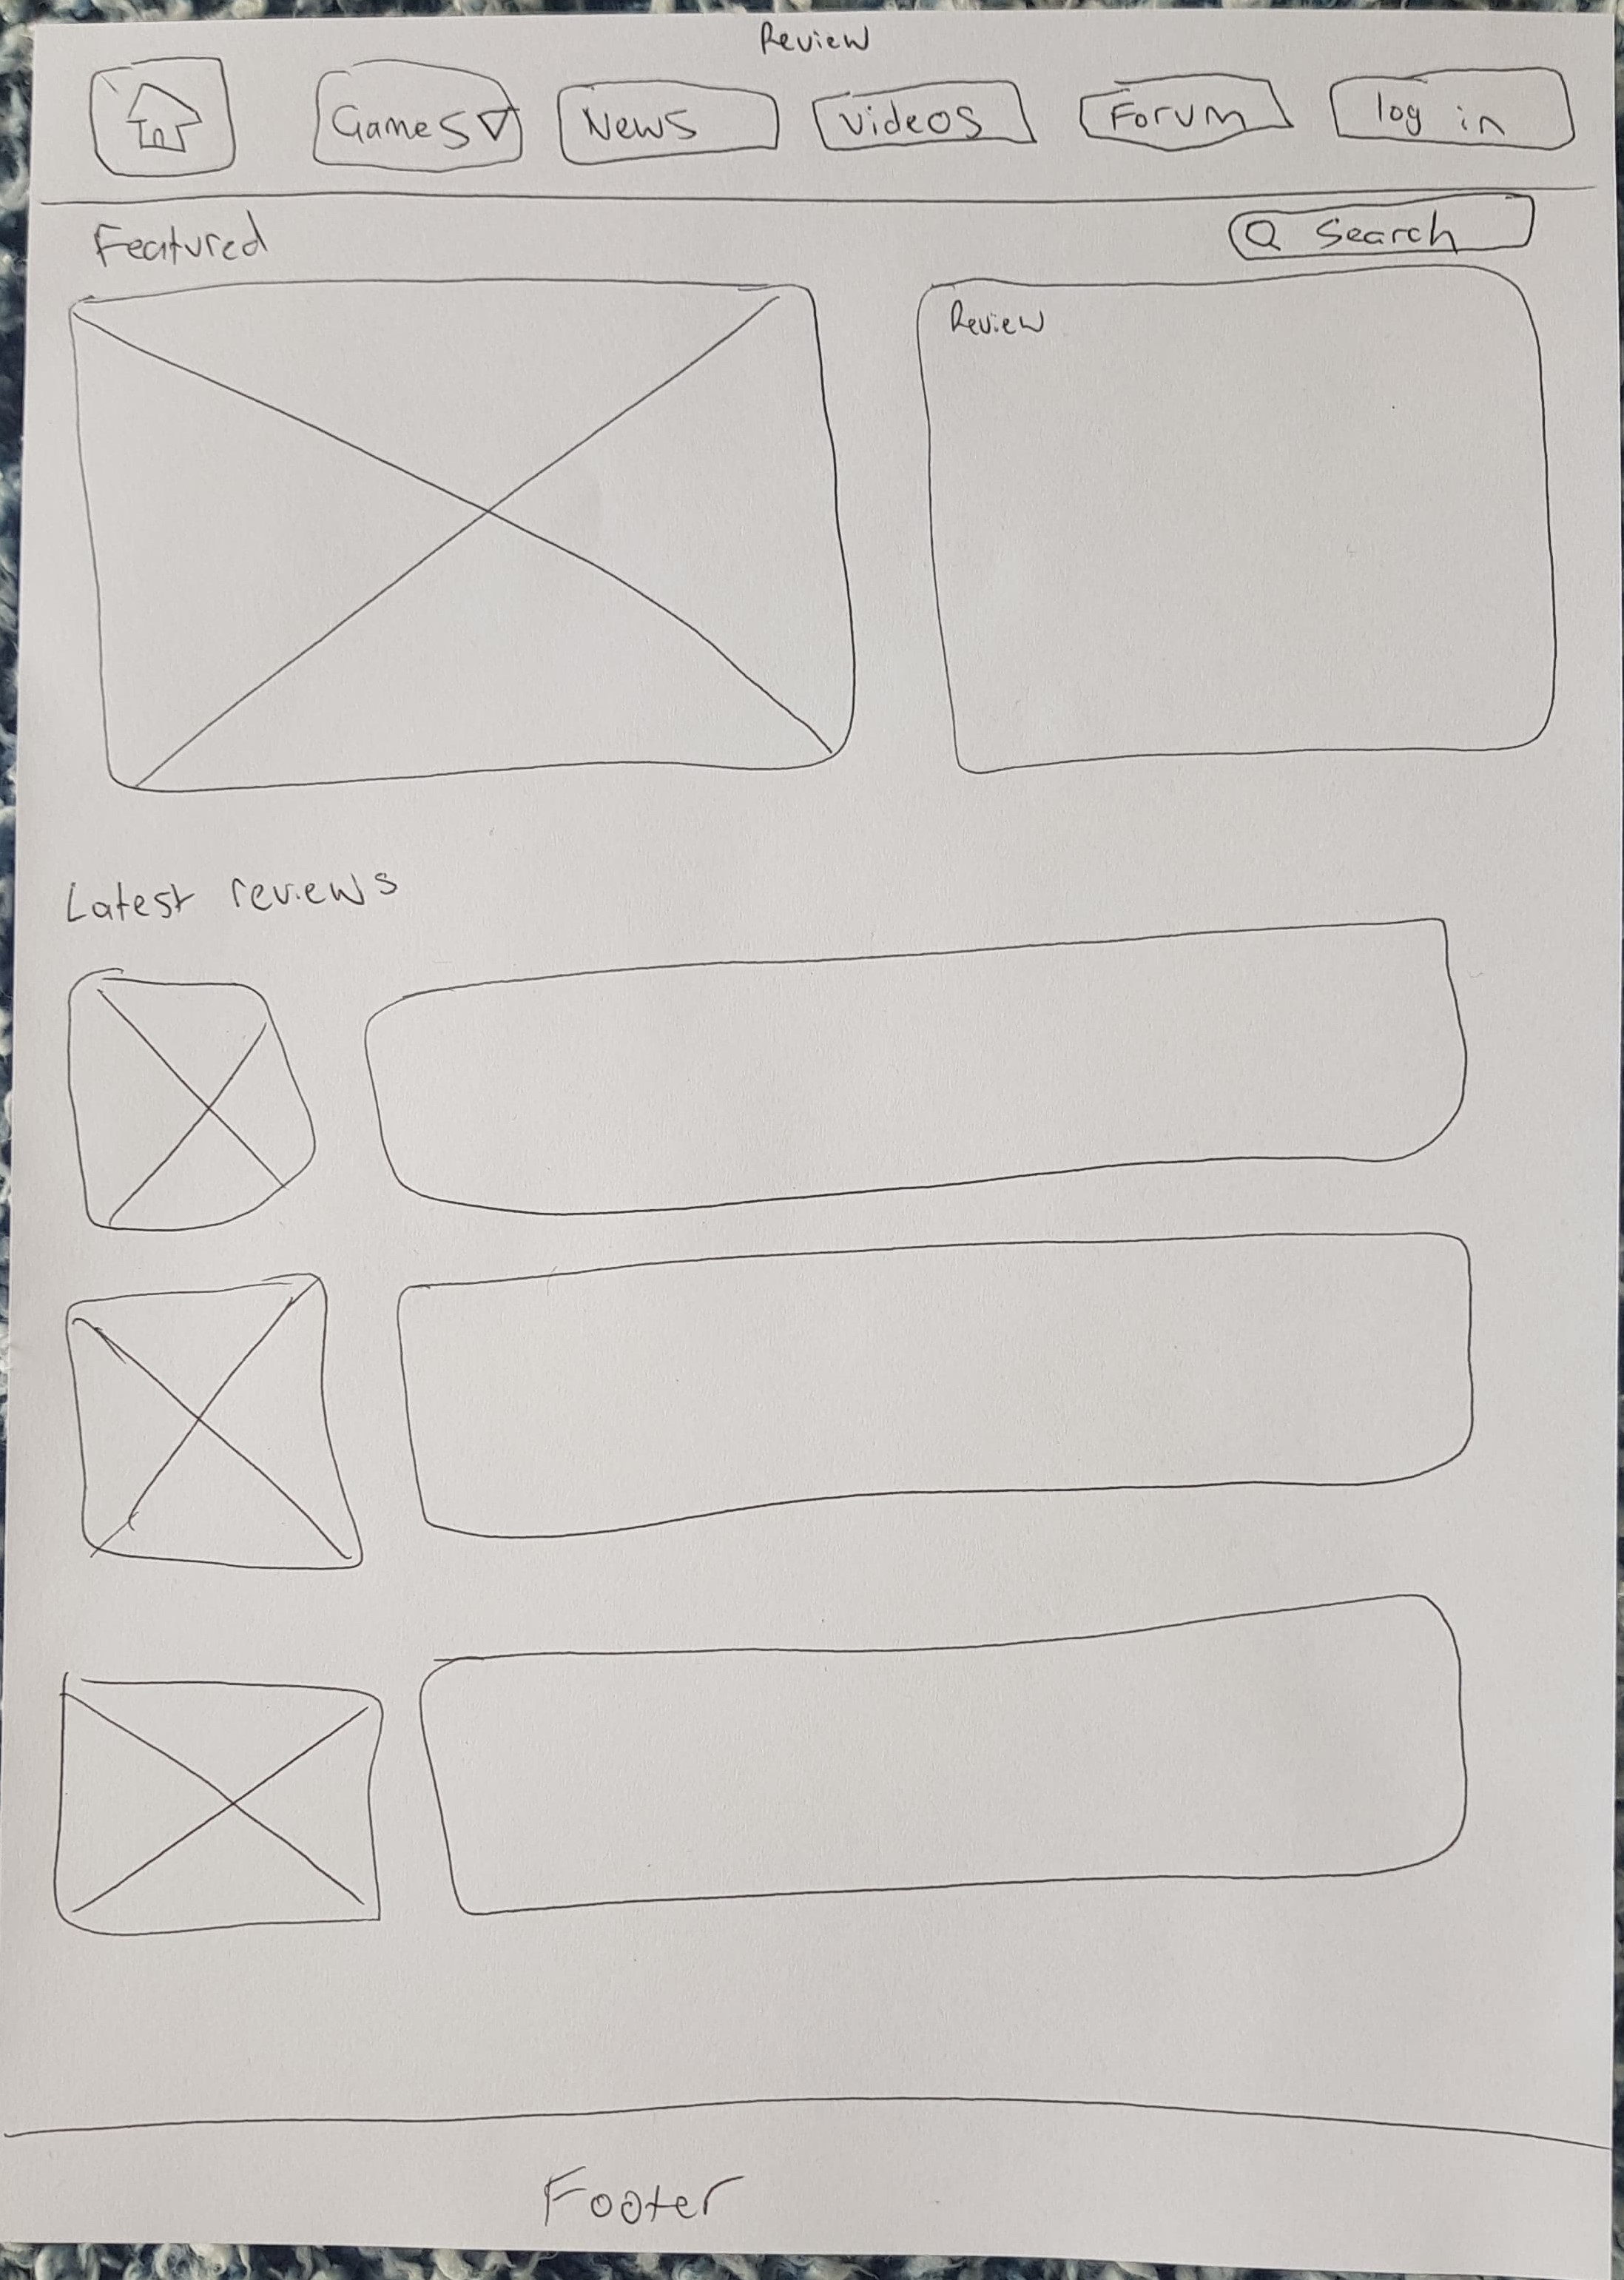 Review
Games News Videos Forum log in
Featured
Search
Review
Latest reviews
Footer